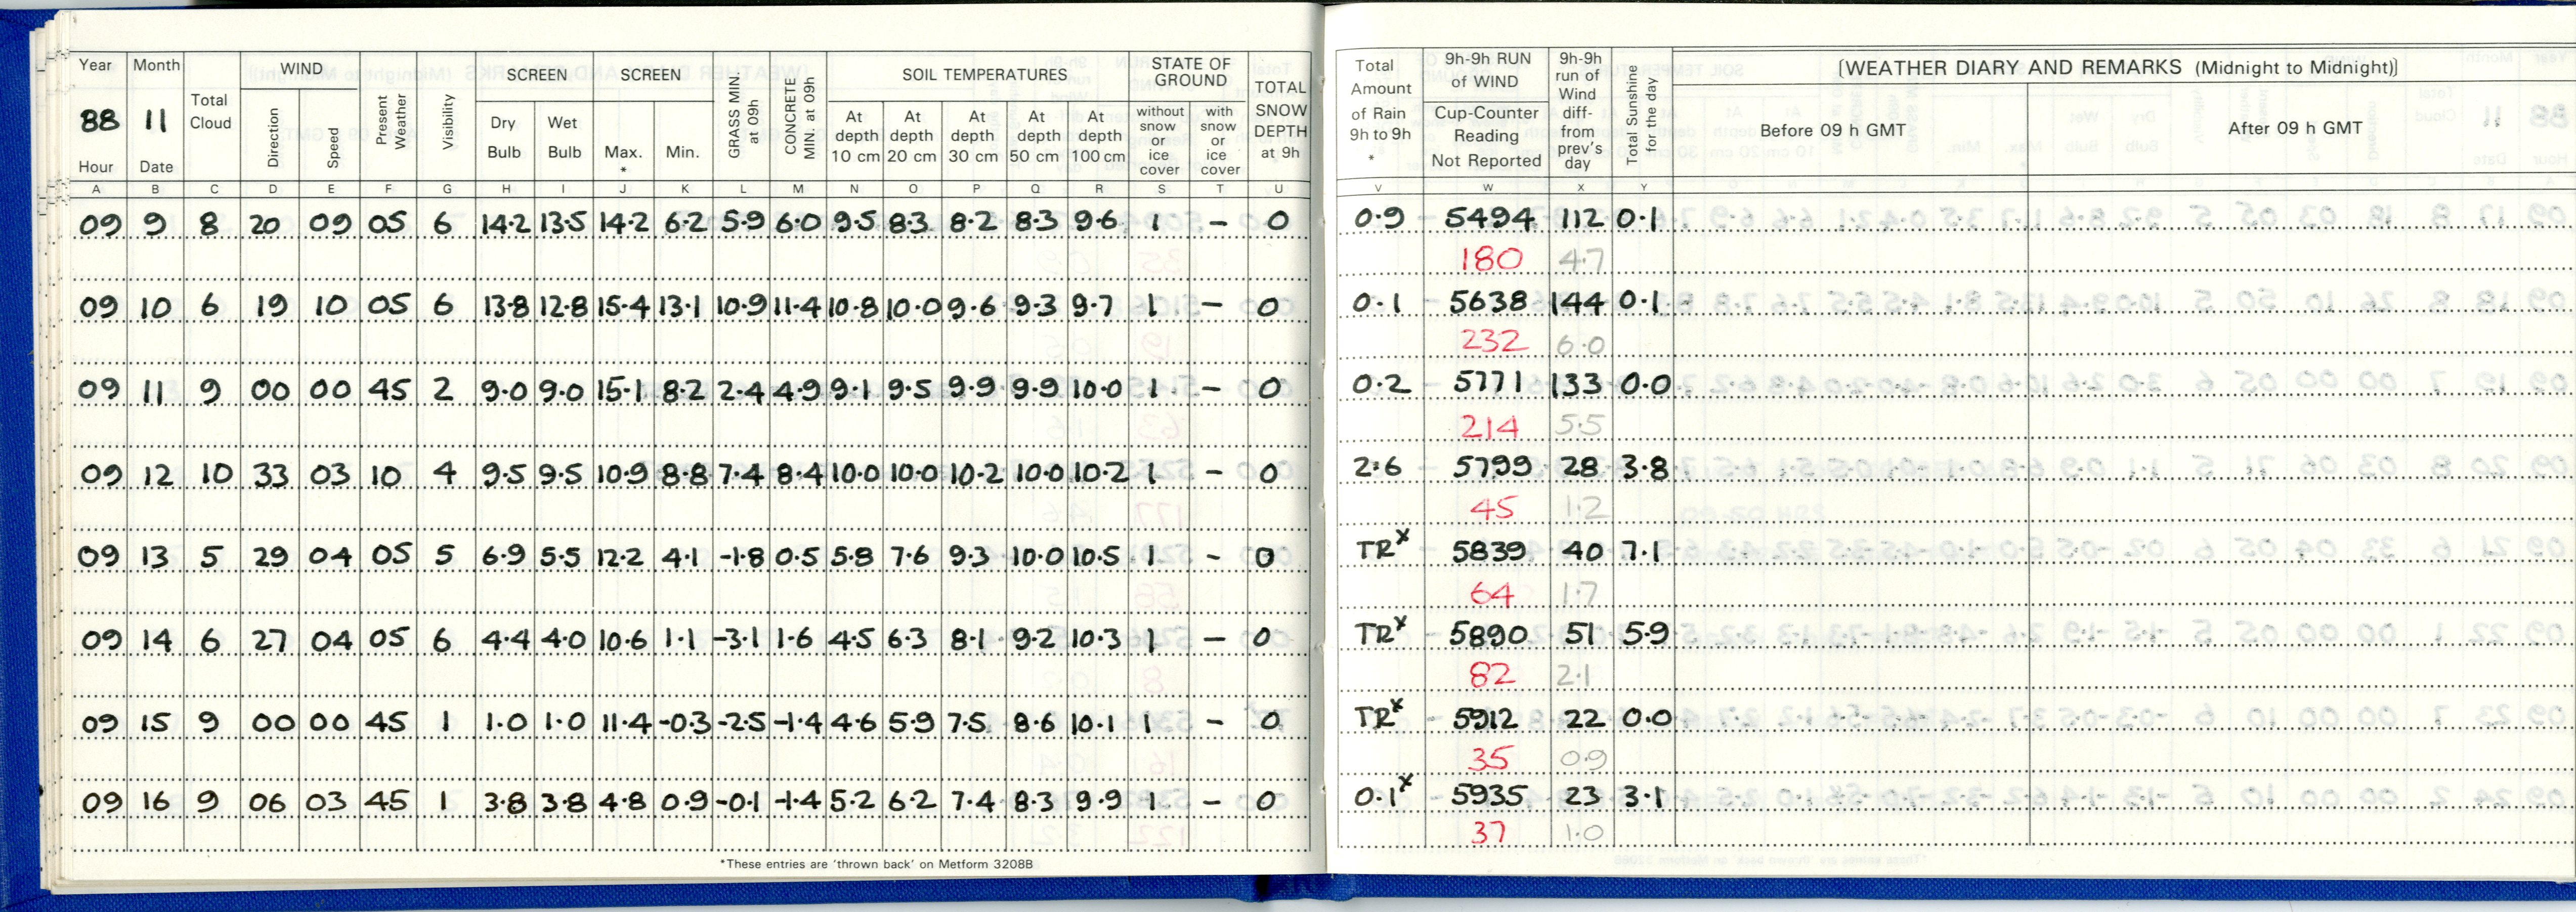 Year Month WIND SCREEN SCREEN GRASS MIN. at 09h CONCRETE MIN at 09h SOIL TEMPERATURES STATE OF GROUND TOTAL SNOW DEPTH at 9h
88 11 Total Cloud Direction Speed Present Weather Visibility Dry Bulb Wet Bulb Max. * Min. At depth 10 cm At depth 20 cm At depth 30 cm At depth 50 cm At depth 100 cm without snow or ice cover with snow or ice cover
Hour Date
A B C D E F G H I J K L M N O P Q R S T U
09 9 8 20 09 05 6 14.2 13.5 14.2 6.2 5.9 6.0 9.5 8.3 8.2 8.3 9.6 1 – 0
09 10 6 19 10 05 6 13.8 12.8 15.4 13.1 10.9 11.4 10.8 10.0 9.6 9.3 9.7 1 – 0
09 11 9 00 00 45 2 9.0 9.0 15.1 8.2 2.4 4.9 9.1 9.5 9.9 9.9 10.0 1 – 0
09 12 10 33 03 10 4 9.5 9.5 10.9 8.8 7.4 8.4 10.0 10.0 10.2 10.0 10.2 1 – 0
09 13 5 29 04 05 5 6.9 5.5 12.2 4.1 -1.8 0.5 5.8 7.6 9.3 10.0 10.5 1 – 0
09 14 6 27 04 05 6 4.4 4.0 10.6 1.1 -3.1 1.6 4.5 6.3 8.1 9.2 10.3 1 – 0
09 15 9 00 00 45 1 1.0 1.0 11.4 -0.3 -2.5 -1.4 4.6 5.9 7.5 8.6 10.1 1 – 0
09 16 9 06 03 45 1 3.8 3.8 4.8 0.9 -0.1 -1.4 5.2 6.2 7.4 8.3 9.9 1 – 0
*These entries are 'thrown back' on Metform 3208B
Total Amount of Rain 9h to 9h * 9h-9h RUN of WIND Cup-Counter Reading Not Reported 9h-9h run of Wind diff- from prev's day Total Sunshine for the day [WEATHER DIARY AND REMARKS (Midnight to Midnight)]
Before 09 h GMT After 09 h GMT
V W X Y
0.9 5494 112 0.1
180 4.7
0.1 5638 144 0.1
232 6.0
0.2 5771 133 0.0
214 5.5
2.6 5799 28 3.8
45 1.2
TRx 5839 40 7.1
64 1.7
TRx 5890 51 5.9
82 2.1
TRx 5912 22 0.0
35 0.9
0.1x 5935 23 3.1
37 1.0